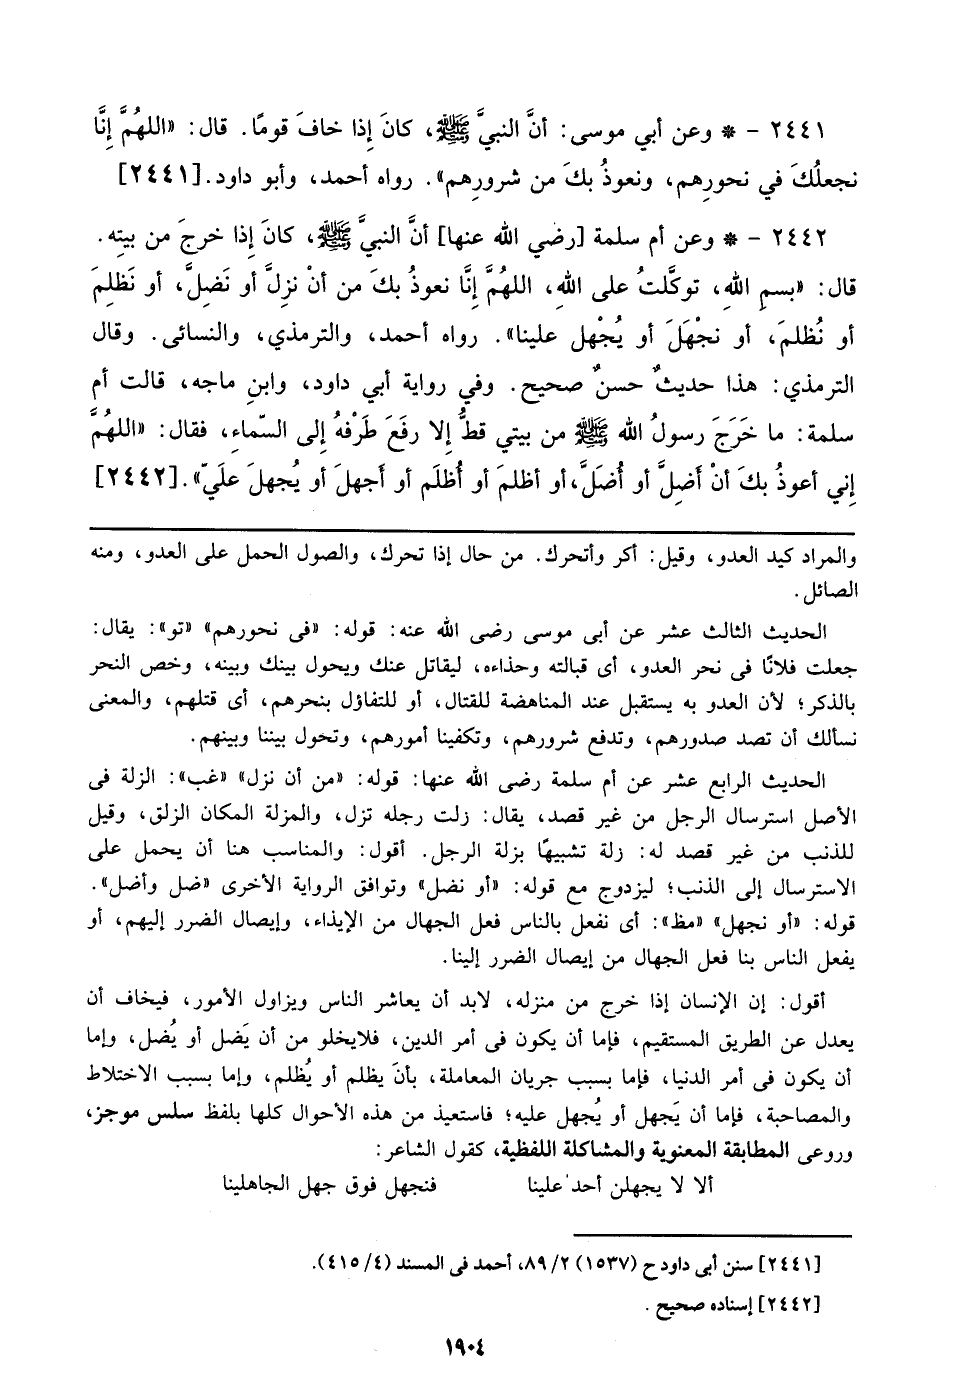 ٢٤٤١ - * وعن أبي موسى: أنَّ النبيَّ ﷺ، كانَ إِذا خافَ قومًا. قال: «اللهُمَّ إِنَّا
نجعلُكَ في نحورِهم، ونعوذُ بكَ من شرورِهم». رواه أحمد، وأبو داود.[٢٤٤١]
٢٤٤٢ - * وعن أم سلمة [رضي الله عنها] أنَّ النبيَّ ﷺ، كانَ إِذا خرجَ من بيتِه.
قال: «بسمِ اللهِ، توكَّلتُ على اللهِ، اللهُمَّ إِنَّا نعوذُ بكَ من أنْ نزِلَّ أو نَضِلَّ، أو نَظلِمَ
أو نُظلمَ، أو نجْهَلَ أو يُجْهل علينا». رواه أحمد، والترمذي، والنسائى. وقال
الترمذي: هذا حديثٌ حسنٌ صحيح. وفي رواية أبي داود، وابنِ ماجه، قالت أم
سلمة: ما خَرَجَ رسولُ الله ﷺ من بيتي قطُّ إِلا رفَعَ طَرْفهُ إِلى السّماءِ، فقال: «اللهُمَّ
إِني أعوذُ بكَ أنْ أَضِلَّ أو أُضَلَّ،أو أظلمَ أو أُظلَم أو أجهلَ أو يُجهلَ علَيّ».[٢٤٤٢]
والمراد كيد العدو، وقيل: أكر وأتحرك. من حال إذا تحرك، والصول الحمل على العدو، ومنه
الصائل.
الحديث الثالث عشر عن أبى موسى رضى الله عنه: قوله: «فى نحورهم» «تو»: يقال:
جعلت فلانًا فى نحر العدو، أى قبالته وحذاءه، ليقاتل عنك ويحول بينك وبينه، وخص النحر
بالذكر؛ لأن العدو به يستقبل عند المناهضة للقتال، أو للتفاؤل بنحرهم، أى قتلهم، والمعنى
نسألك أن تصد صدورهم، وتدفع شرورهم، وتكفينا أمورهم، وتحول بيننا وبينهم.
الحديث الرابع عشر عن أم سلمة رضى الله عنها: قوله: «من أن نزل» «غب»: الزلة فى
الأصل استرسال الرجل من غير قصد، يقال: زلت رجله تزل، والمزلة المكان الزلق، وقيل
للذنب من غير قصد له: زلة تشبيهًا بزلة الرجل. أقول: والمناسب هنا أن يحمل على
الاسترسال إلى الذنب؛ ليزدوج مع قوله: «أو نضل» وتوافق الرواية الأخرى «ضل وأضل».
قوله: «أو نجهل» «مظ»: أى نفعل بالناس فعل الجهال من الإيذاء، وإيصال الضرر إليهم، أو
يفعل الناس بنا فعل الجهال من إيصال الضرر إلينا.
أقول: إن الإنسان إذا خرج من منزله، لابد أن يعاشر الناس ويزاول الأمور، فيخاف أن
يعدل عن الطريق المستقيم، فإما أن يكون فى أمر الدين، فلايخلو من أن يَضل أو يُضل، وإما
أن يكون فى أمر الدنيا، فإما بسبب جريان المعاملة، بأنَ يظلم أو يُظلم، وإما بسبب الاختلاط
والمصاحبة، فإما أن يَجهل أو يُجهل عليه؛ فاستعيذ من هذه الأحوال كلها بلفظ سلس موجز،
وروعى المطابقة المعنوية والمشاكلة اللفظية، كقول الشاعر:
ألا لا يجهلن أحد علينا فنجهل فوق جهل الجاهلينا
[٢٤٤١] سنن أبى داود ح (١٥٣٧) ٨٩/٢، أحمد فى المسند (٤١٥/٤).
[٢٤٤٢] إسناده صحيح.
١٩٠٤